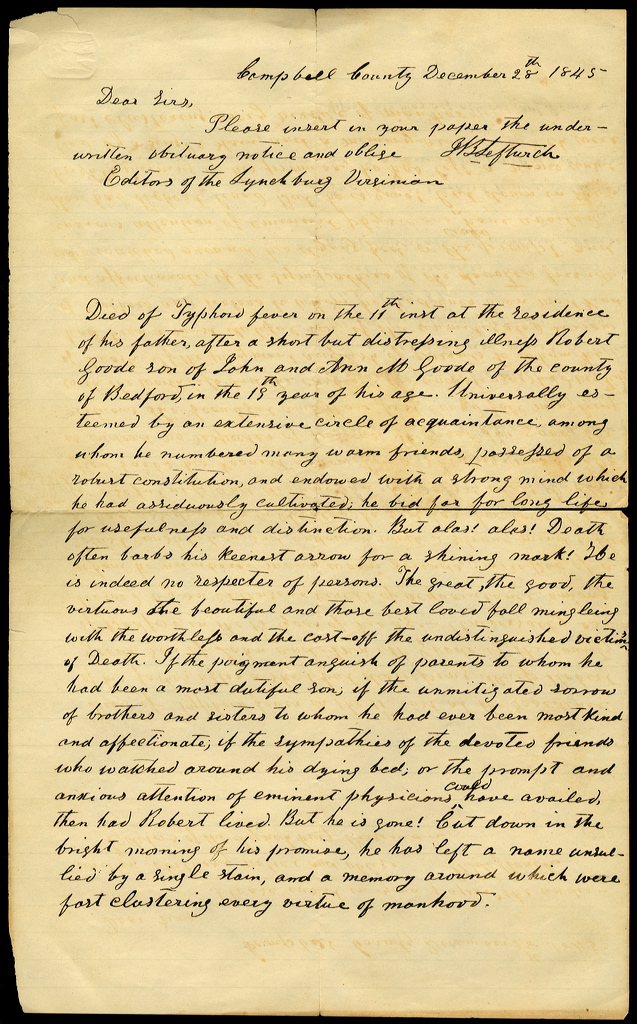 Campbell County December 28th 1845
Dear Sirs,
Please insert in your paper the under-
written obituary notice and oblige
Editors of the Lynchburg Virginian
Died of Typhoid fever on the 11th inst at the residence
of his father, after a short but distressing illness Robert
Goode son of John and Ann M Goode of the county
of Bedford, in the 19th year of his age. Universally es-
teemed by an extensive circle of acquaintance, among
whom he numbered many warm friends, possessed of a
robust constitution, and endowed with a strong mind which
he had assiduously cultivated; he bid far for long life,
for usefulness and distinction. But alas! alas! Death
often barbs his keenest arrow for a shining mark! He
is indeed no respecter of persons. The great, the good, the
virtuous the beautiful and those best loved fall mingleing
with the worthless and the cast-off the undistinguished victims
of Death. If the poignment anguish of parents to whom he
had been a most dutiful son, if the unmitigated sorrow
of brothers and sisters to whom he had ever been most kind
and affectionate, if the sympathies of the devoted friends
who watched around his dying bed, or the prompt and
anxious attention of eminent physicians could have availed,
then had Robert lived. But he is gone! Cut down in the
bright morning of his promise, he has left a name unsul-
lied by a single stain, and a memory around which were
fast clustering every virtue of manhood.